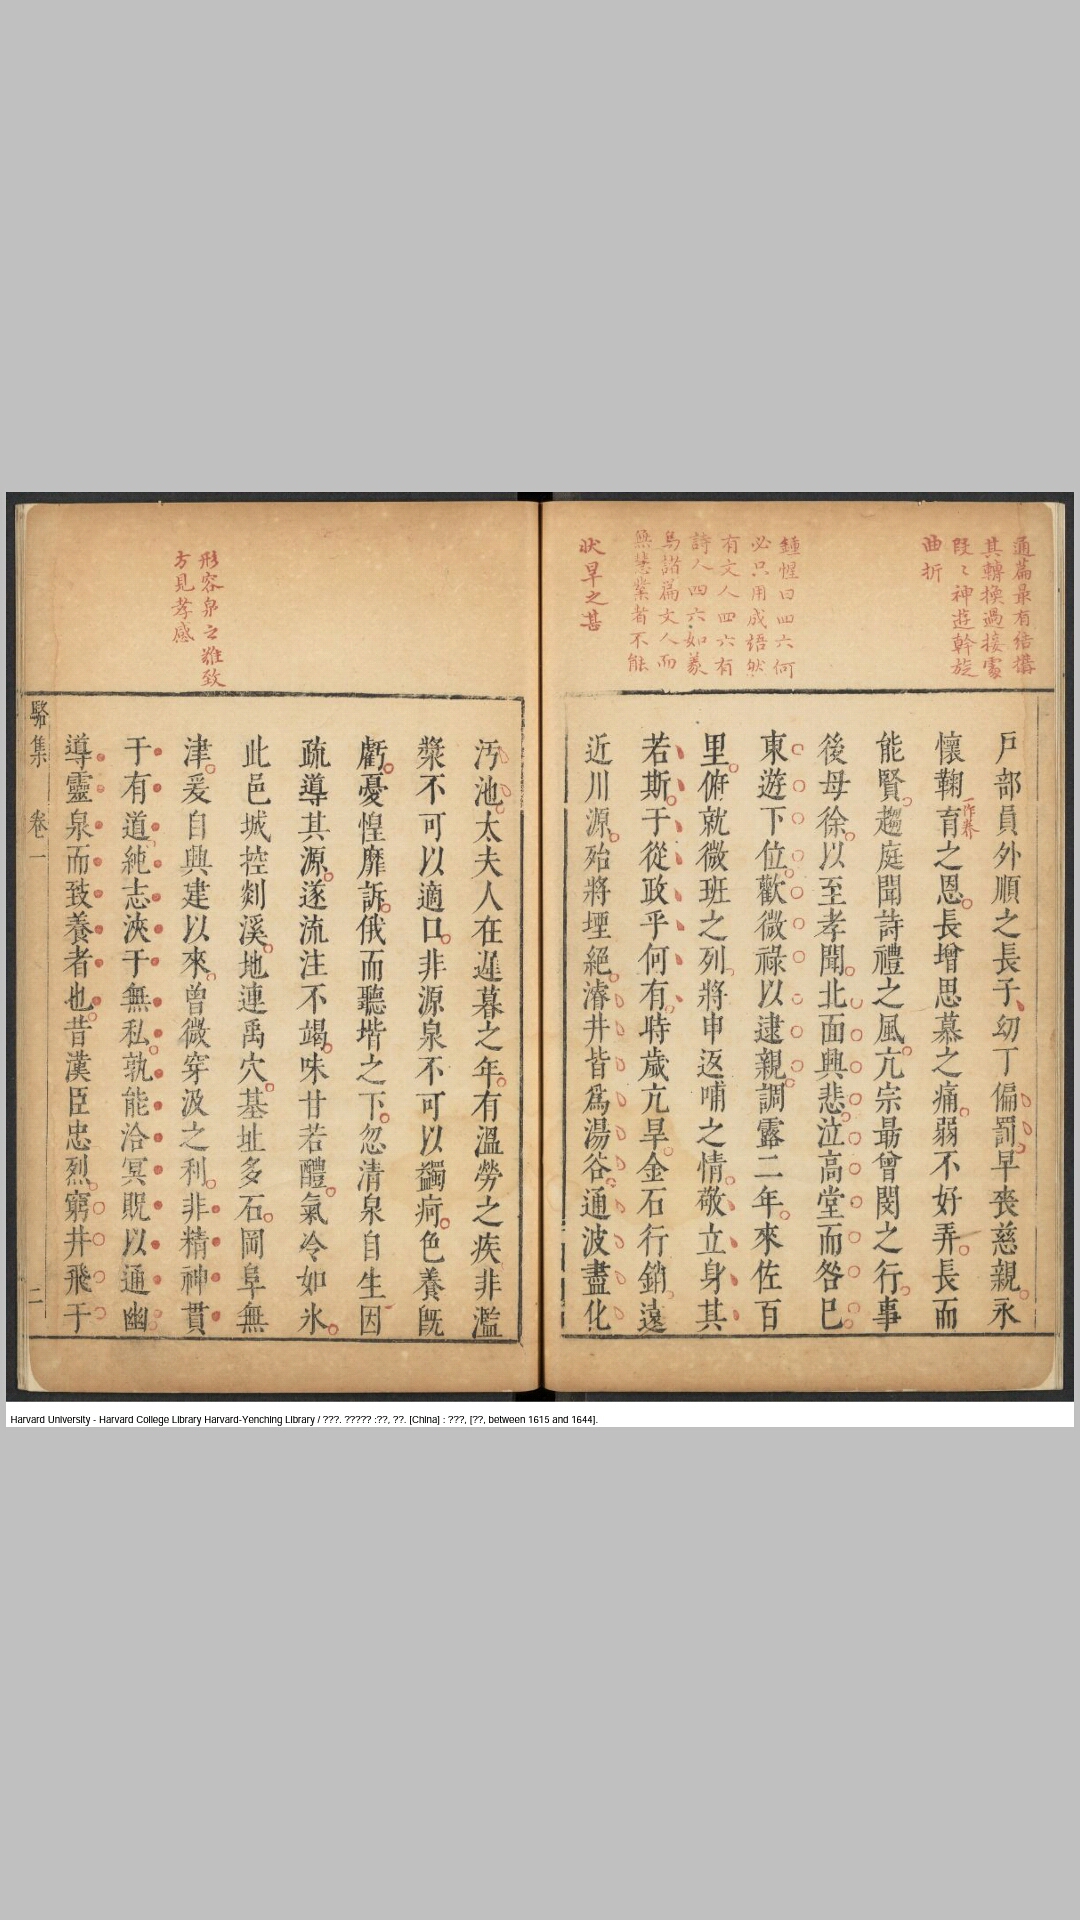 通篇最有結搆
其轉換過接處
段〻神遊幹旋
曲折
鍾惺曰四六何
必只用成語然
有文人四六有
詩人四六如羲
烏諸篇文人而
無慧業者不能
狀旱之甚
戶部員外順之長子幼丁偏罰早喪慈親永
懷鞠育之恩長增思慕之痛弱不好弄長而
一作養
能賢趨庭聞詩禮之風亢宗最曾閔之行事
後母徐以至孝聞北面興悲泣高堂而咎巳
東遊下位歡微祿以逮親調露二年來佐百
里俯就微班之列將申返哺之情敬立身其
若斯于從政乎何有時歲亢旱金石行銷遠
近川源殆將堙絕濬井皆爲湯谷通波盡化
形容泉之難致
方見孝感
汚池太夫人在遲暮之年有溫勞之疾非濫
漿不可以適口非源泉不可以蠲痾色養既
虧憂惶靡訴俄而聽堦之下忽清泉自生因
疏導其源遂流注不竭味甘若醴氣冷如氷
此邑城控剡溪地連禹穴基址多石岡阜無
津爰自興建以來曾微穿汲之利非精神貫
于有道純志浹于無私孰能洽冥貺以通幽
導靈泉而致養者也昔漢臣忠烈窮井飛于
集 卷一 二
Harvard University - Harvard College Library Harvard-Yenching Library / ???. ????? :??, ??. [China] : ???, [??, between 1615 and 1644].